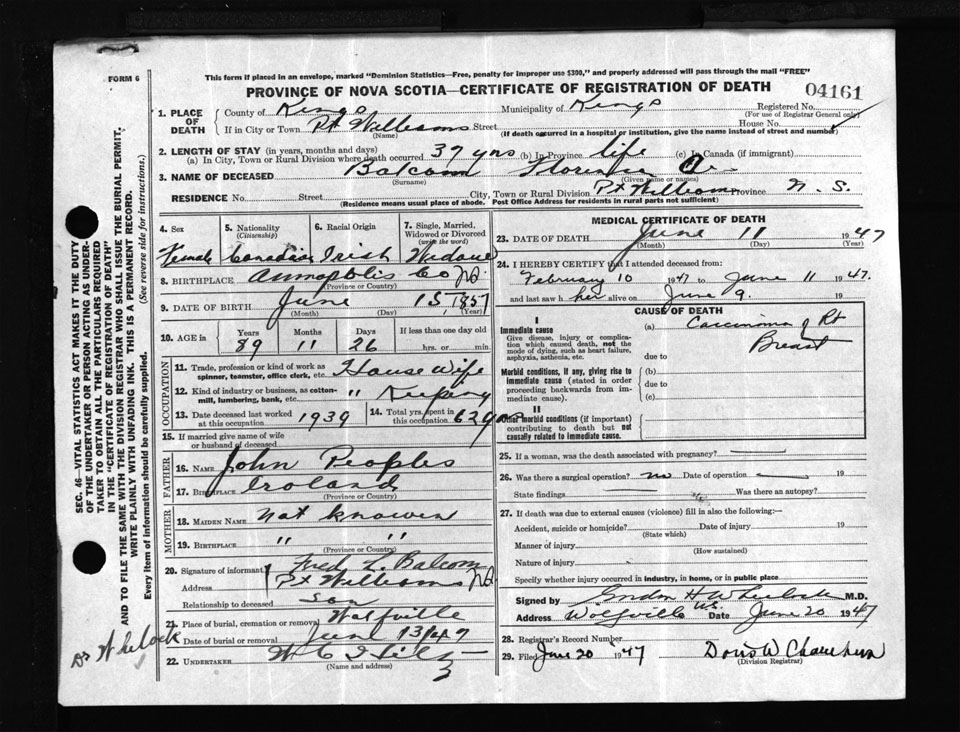 FORM 6
This form if placed in an envelope, marked "Dominion Statistics—Free, penalty for improper use $300," and properly addressed will pass through the mail "FREE"
PROVINCE OF NOVA SCOTIA—CERTIFICATE OF REGISTRATION OF DEATH 04161
SEC. 46—VITAL STATISTICS ACT MAKES IT THE DUTY
OF THE UNDERTAKER OR PERSON ACTING AS UNDER-
TAKER TO OBTAIN ALL THE PARTICULARS REQUIRED
IN THE "CERTIFICATE OF REGISTRATION OF DEATH"
AND TO FILE THE SAME WITH THE DIVISION REGISTRAR WHO SHALL ISSUE THE BURIAL PERMIT.
WRITE PLAINLY WITH UNFADING INK. THIS IS A PERMANENT RECORD.
Every item of information should be carefully supplied. (See reverse side for instructions.)
Dr Whelock
1. PLACE OF DEATH County of Kings Municipality of Kings Registered No.
(For use of Registrar General only)
If in City or Town Pt Williams Street House No.
(Name) (If death occurred in a hospital or institution, give the name instead of street and number)
2. LENGTH OF STAY (in years, months and days)
(a) In City, Town or Rural Division where death occurred 37 yrs (b) In Province life (c) In Canada (if immigrant)
3. NAME OF DECEASED Balcom Florence
(Surname) (Given name or names)
RESIDENCE No. Street City, Town or Rural Division Pt Williams Province N. S.
(Residence means usual place of abode. Post Office Address for residents in rural parts not sufficient)
4. Sex 5. Nationality (Citizenship) 6. Racial Origin 7. Single, Married, Widowed or Divorced (write the word)
Female Canadian Irish Widow
8. BIRTHPLACE Annapolis Co NS.
(Province or Country)
9. DATE OF BIRTH June 15 1857
(Month) (Day) (Year)
10. AGE in Years Months Days If less than one day old
89 11 26 hrs. or min.
OCCUPATION
11. Trade, profession or kind of work as spinner, teamster, office clerk, etc. House Wife
12. Kind of industry or business, as cotton-mill, lumbering, bank, etc. " Keeping
13. Date deceased last worked at this occupation 1939 14. Total yrs. spent in this occupation 62 yrs
15. If married give name of wife or husband of deceased
FATHER
16. NAME John Peoples
17. BIRTHPLACE Iroland
(Province or Country)
MOTHER
18. MAIDEN NAME NotKnowen
19. BIRTHPLACE " "
(Province or Country)
20. Signature of informant Fred L. Balcom
Address Pt Williams NS
Relationship to deceased son
21. Place of burial, cremation or removal Walfville
Date of burial or removal June 13/47
22. UNDERTAKER
(Name and address)
MEDICAL CERTIFICATE OF DEATH
23. DATE OF DEATH June 11 1947
(Month) (Day) (Year)
24. I HEREBY CERTIFY that I attended deceased from:
February 10 1947 to June 11 1947.
and last saw her alive on June 9. 19
CAUSE OF DEATH
I
Immediate cause (a) Carcinoma of Rt Breast
Give disease, injury or complication which caused death, not the mode of dying, such as heart failure, asphyxia, asthenia, etc. due to
Morbid conditions, if any, giving rise to immediate cause (stated in order proceeding backwards from immediate cause). (b) due to (c)
II
Other morbid conditions (if important) contributing to death but not causally related to immediate cause.
25. If a woman, was the death associated with pregnancy?
26. Was there a surgical operation? no Date of operation 19
State findings Was there an autopsy?
27. If death was due to external causes (violence) fill in also the following:—
Accident, suicide or homicide? Date of injury 19
(State which)
Manner of injury
(How sustained)
Nature of injury
Specify whether injury occurred in industry, in home, or in public place
Signed by Gordon H Wheelock M.D.
Address Wolfville NS. Date June 20 1947
28. Registrar's Record Number
29. Filed June 20 1947 Doris W
(Division Registrar)